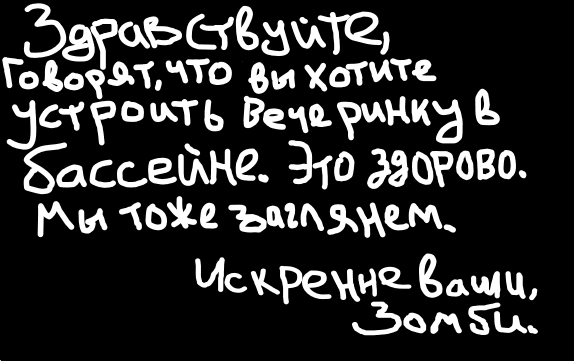 Здравствуйте,
Говорят, что вы хотите
устроить Вечеринку в
бассейне. Это здорово.
Мы тоже заглянем.
Искренне ваши,
Зомби.